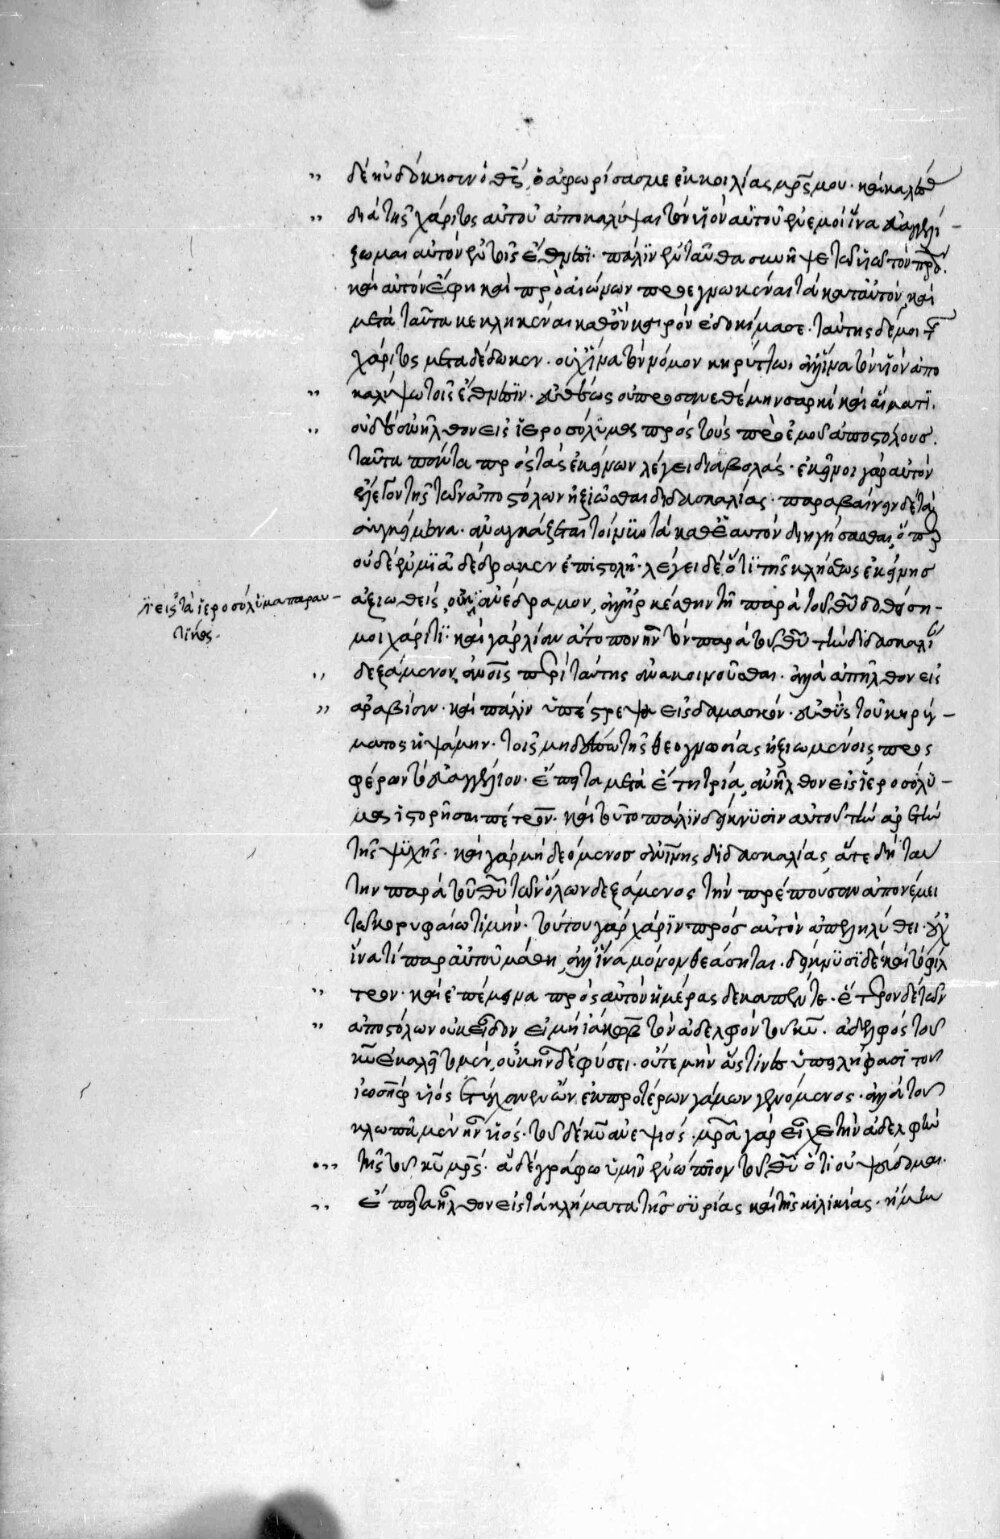 δὲ ηὐδόκησεν ὁ θς, ὁ ἀφωρίσας με ἐκ κοιλίας μρς μου· καὶ καλέσας
διὰ τῆς χάριτος αὐτοῦ ἀποκαλύψαι τὸν υἱὸν αὐτοῦ ἐν ἐμοὶ ἵνα εὐαγγελί-
ζωμαι αὐτὸν ἐν τοῖς ἔθνεσι· πάλιν ἐνταῦθα συνῆψε τῶ υἱῶ τὸν πρα·
καὶ αὐτὸν ἔφη καὶ πρὸ αἰώνων προεγνωκέναι τὰ κατ' αὐτὸν, καὶ
μετὰ ταῦτα κεκληκέναι καθ' ὃν καιρὸν ἐδοκίμασε· ταύτης δέ μοι τῆς
χάριτος μεταδέδωκεν· οὐχ ἵνα τὸν νόμον κηρύττω, ἀλλ' ἵνα τὸν υἱὸν ἀπο
καλύψω τοῖς ἔθνεσιν· εὐθέως οὐ προσανεθέμην σαρκὶ καὶ αἵματι·
οὐδὲ ἀνῆλθον εἰς ἱεροσόλυμα πρὸς τοὺς πρὸ ἐμοῦ ἀποστόλους·
ταῦτα πάντα πρὸς τὰς ἐκείνων λέγει διαβολάς· ἐκεῖνοι γὰρ αὐτὸν
ἔλεγον τῆς τῶν ἀποστόλων ἠξιῶσθαι διδασκαλίας· παραβαίνειν δὲ τὰ
συγκείμενα· ἀναγκάζεται τοίνυν τὰ καθ' ἑαυτὸν διηγήσασθαι, ὅπερ
οὐδὲ ἐν μιᾶ δέδρακεν ἐπιστολῆ· λέγει δὲ ὅτι τῆς κλήσεως ἐκείνης
ἀξιωθεὶς, οὐκ ἀνέδραμον, ἀλλ' ἠρκέσθην τῆ παρὰ τοῦ θυ δοθείση
μοι χάριτι· καὶ γὰρ λίαν ἄτοπον ἦν τὸν παρὰ τοῦ θυ τὴν διδασκαλίαν
δεξάμενον, ἀνοις περὶ ταύτης ἀνακοινοῦσθαι· ἀλλὰ ἀπῆλθον εἰς
ἀραβίαν· καὶ πάλιν ὑπέστρεψα εἰς δαμασκόν· εὐθὺς τοῦ κηρύγ-
ματος ἡψάμην· τοῖς μηδέπω τῆς θεογνωσίας ἠξιωμένοις, προς
φέρων τὸ εὐαγγέλιον· ἔπειτα μετὰ ἔτη τρία, ἀνῆλθον εἰς ἱεροσόλυ-
μα ἱστορῆσαι πέτρον· καὶ τοῦτο πάλιν δείκνυσιν αὐτοῦ τὴν ἀρετὴν
τῆς ψυχῆς· καὶ γὰρ μὴ δεόμενος ἀνίνης διδασκαλίας, ἅτε δὴ ταύ
την παρὰ τοῦ θυ τῶν ὅλων δεξάμενος τὴν πρέπουσαν ἀπονέμει
τῶ κορυφαίω τιμήν· τούτου γὰρ χάριν πρὸς αὐτὸν ἀπεληλύθει· οὐχ
ἵνα τὶ παρ' αὐτοῦ μάθη, ἀλλ' ἵνα μόνον θεάσηται· δείκνυσι δὲ καὶ τὸ φίλ
τρον· καὶ ἐπέμεινα πρὸς αὐτὸν ἡμέρας δεκαπέντε· ἕτερον δὲ τῶν
ἀποστόλων οὐκ εἶδον εἰ μὴ ἰάκωβον τὸν ἀδελφὸν τοῦ κυ· ἀδελφὸς τοῦ
κυ ἐκαλεῖτο μὲν, οὐκ ἦν δὲ φύσει· οὔτε μὴν ὥς τινες ὑπειλήφασι τοῦ
ἰωσὴφ υἱὸς ἐτύγχανεν ὢν, ἐκ προτέρων γάμων γενόμενος· ἀλλὰ τοῦ
κλωπᾶ μὲν ἦν υἱός· τοῦ δὲ κυ ἀνεψιός· μρα γὰρ εἶχε τὴν ἀδελφὴν
τῆς τοῦ κυ μρς· ἃ δὲ γράφω ὑμῖν ἐνώπιον τοῦ θυ ὅτι οὐ ψεύδομαι·
ἔπειτα ἦλθον εἰς τὰ κλήματα τῆς συρίας καὶ τῆς κιλικίας· ἤμην
εἰς τὰ ἱεροσόλυμα παραυ-
τίκα·